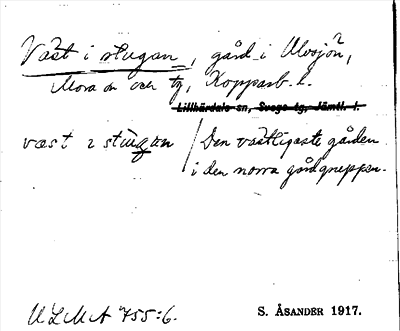 Väst i stugan, gård i Ulvsjön,
Mora sn och tg, Kopparb. l.
Lillhärdals sn, Svegs tg, Jämtl. l.
väst i stugan / Den västligaste gården
i den norra gårdgruppen.
ULMA 755:6.
S. ÅSANDER 1917.